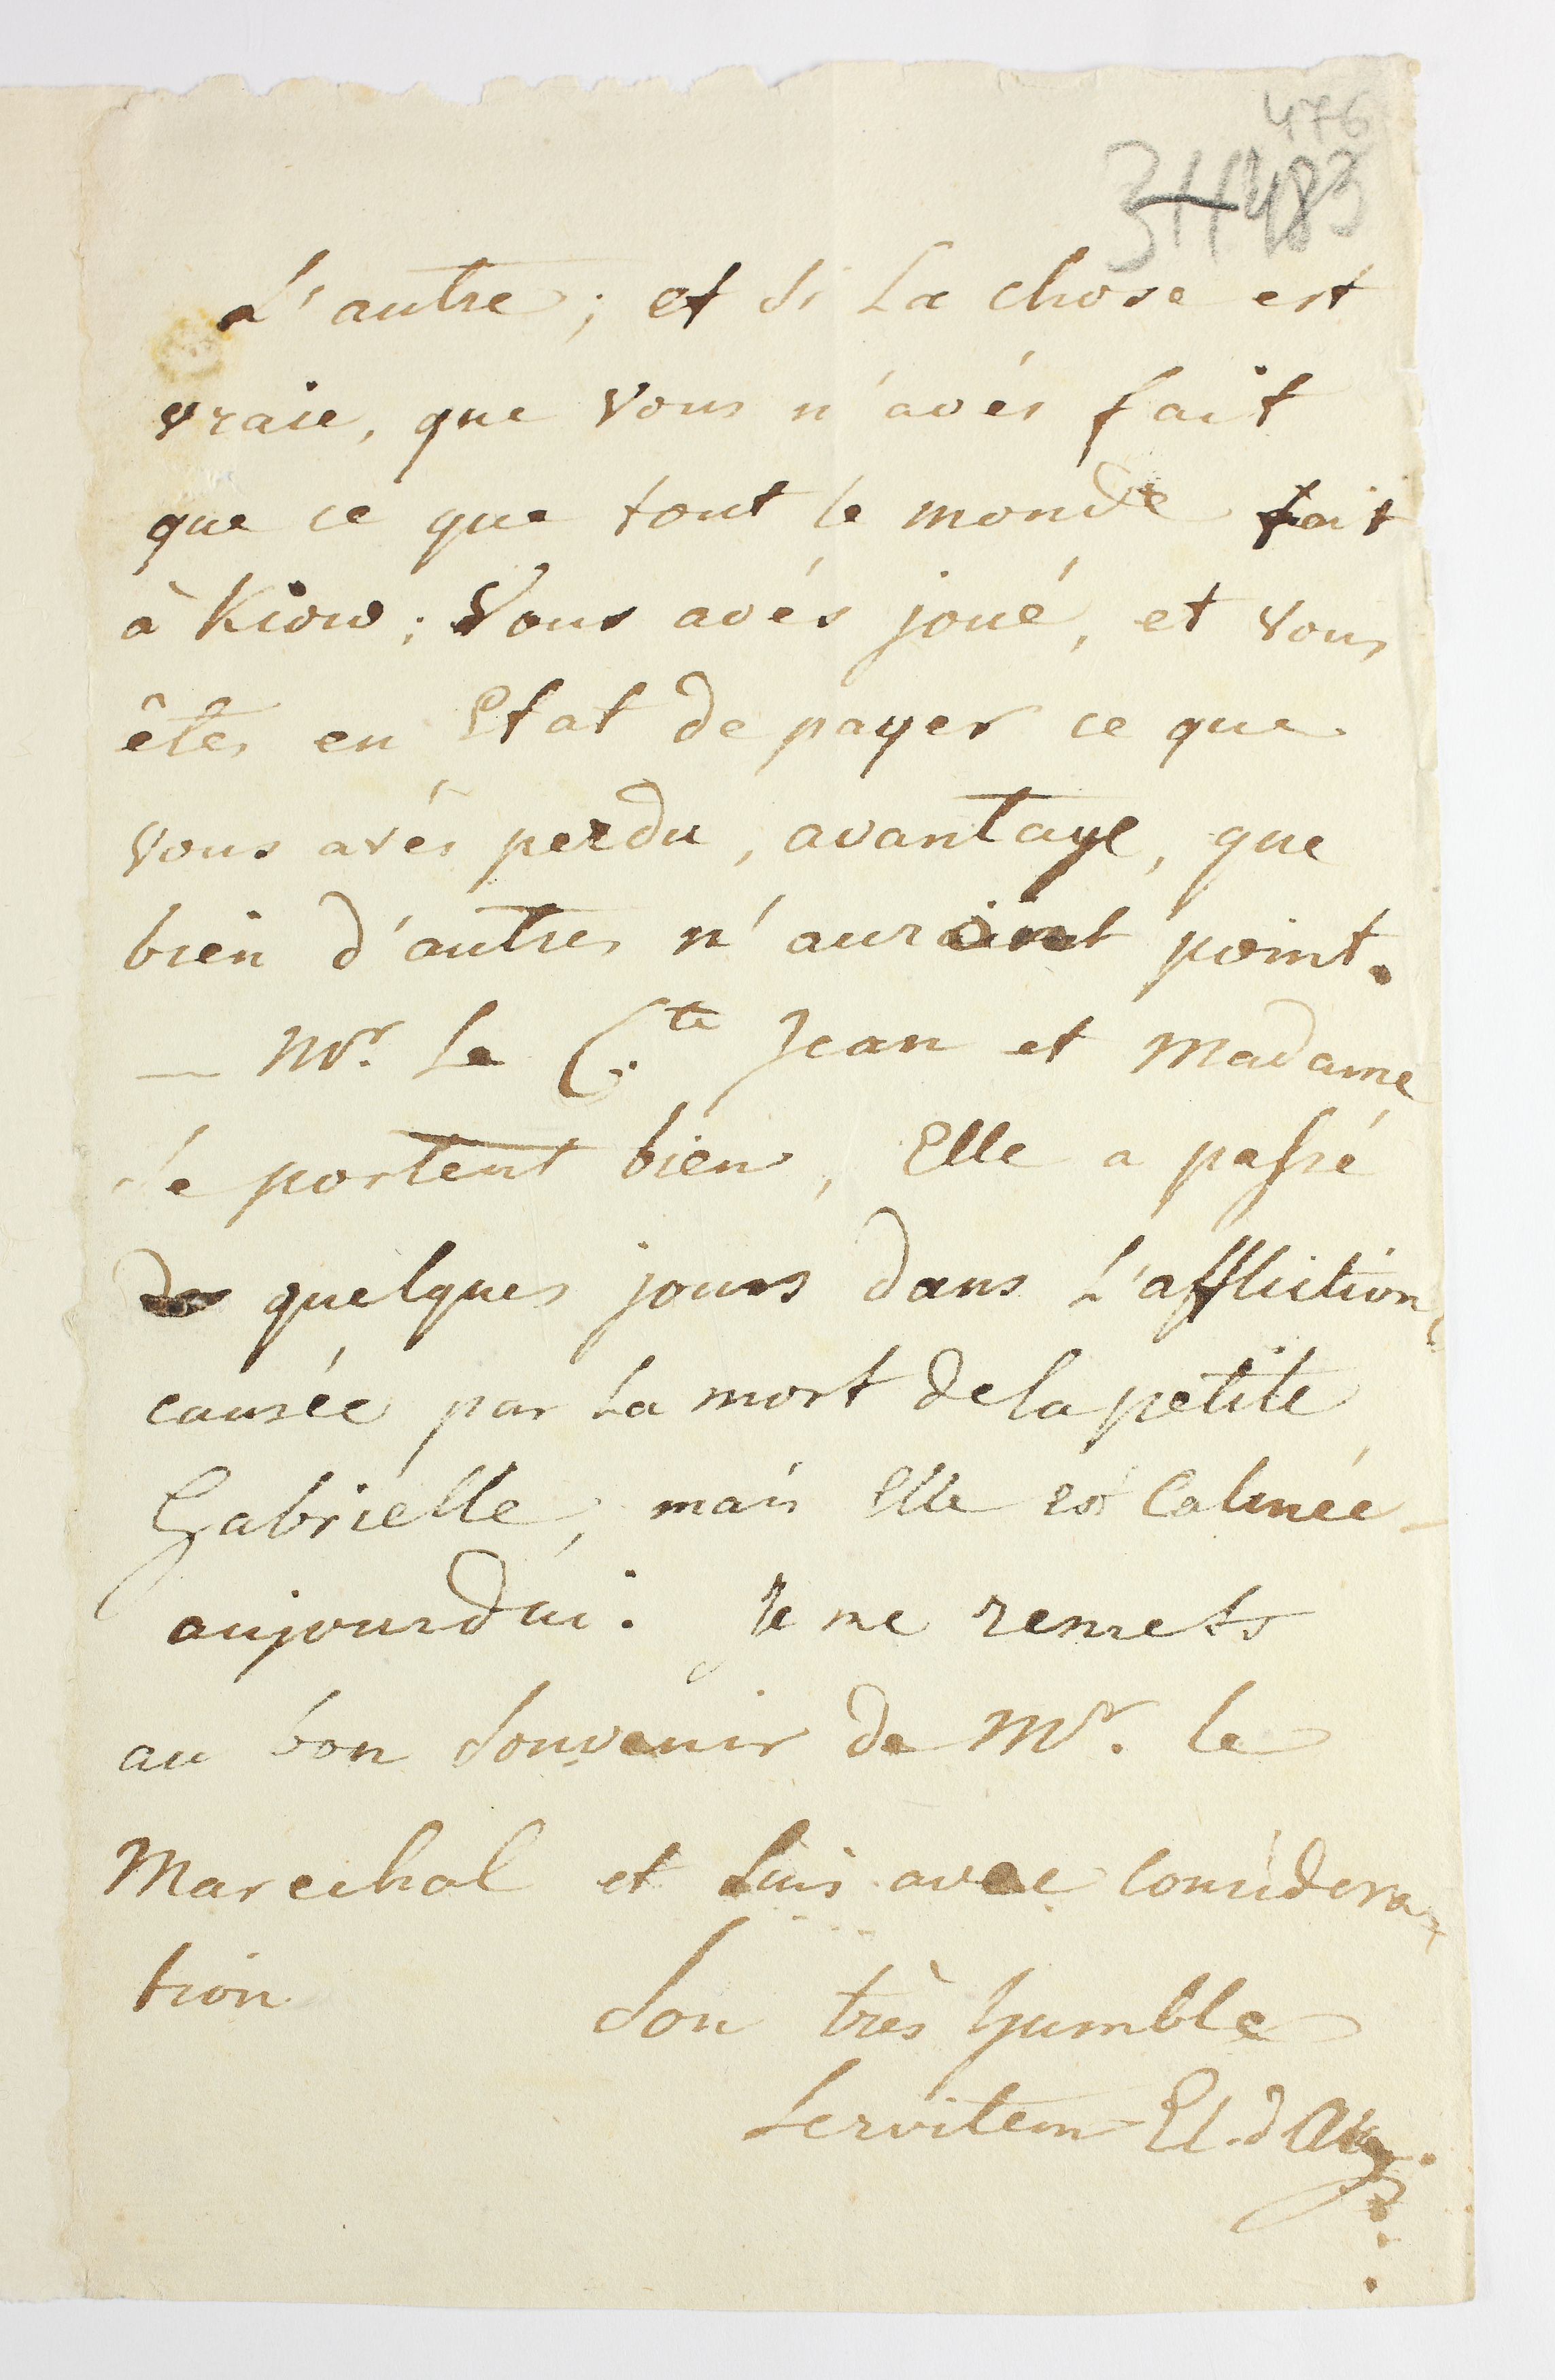 476
311 483
L'autre; et si La chose est
vraie, que vous n'avés fait
que ce que tout le monde fait
à Kiow; Vous avés joué, et vous
êtes en Etat de payer ce que
vous avés perdu, avantage, que
bien d'autres n'auroint point.
— Mr. Le C.te Jean et Madame
se portent bien, Elle a passé
quelques jours dans L'affliction,
causée par La mort de la petite
Gabrielle, mais Elle est Calmée
aujourdui. Je me remets
au bon souvenir de Mr. le
Marechal et suis avec considera-
tion son très humble
serviteur El. d'Aug.